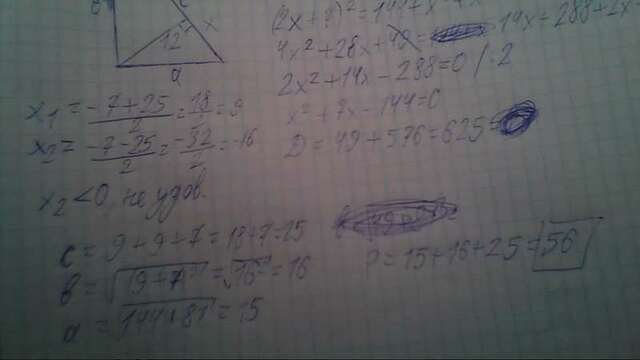 в
c
x
12
a
(2x+7)² = 144+x
4x²+28x+49=
14x+288+2x
2x²+14x-288=0 /:2
x²+7x-144=0
D=49+576=625=
x₁ = -7+25/2 = 18/2 = 9
x₂ = -7-25/2 = -32/2 = -16
x₂<0, не удов.
c = 9+9+7=18+7=25
в = √(9+7)² = √16² = 16
a = √144+81 = 15
P=15+16+25=56